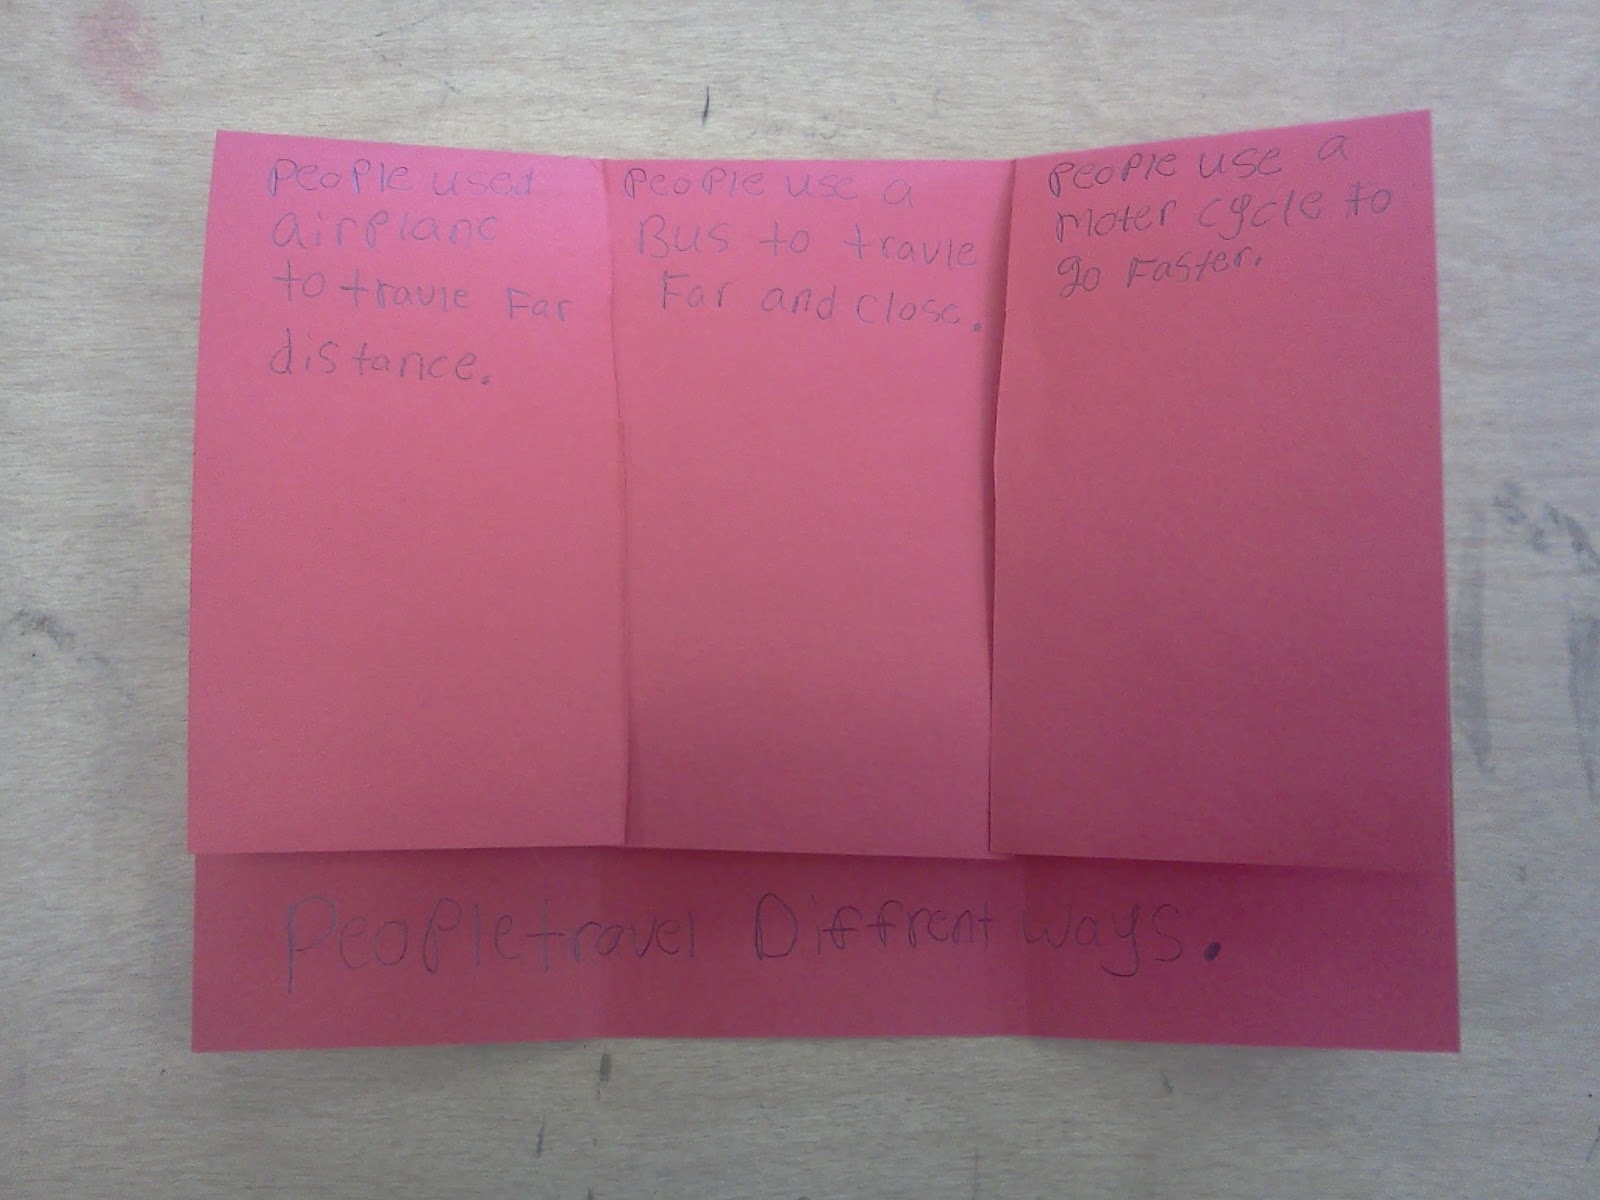 People used
airplane
to travle Far
distance.
People use a
Bus to travle
Far and close.
People use a
moter cycle to
go Faster.
People travel Diffrent ways.